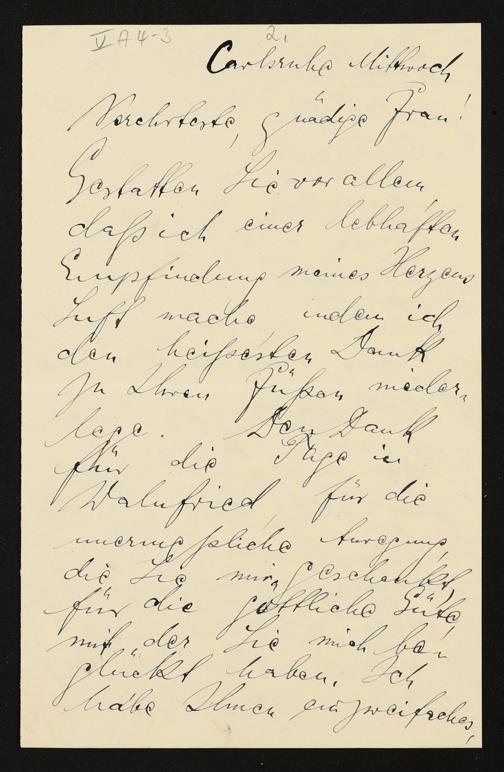 V A 4-3
2.
Carlsruhe Mittwoch
Verehrteste, gnädige Frau!
Gestatten Sie vor allem,
daß ich einer lebhaften
Empfindung meines Herzens
Luft mache indem ich
den heißesten Dank
zu Ihren Füßen nieder-
lege. Den Dank
für die Tage in
Wahnfried, für die
unermeßliche Anregung,
die Sie mir geschenkt,
für die göttliche Güte,
mit der Sie mich be-
glückt haben. Ich
habe Ihnen ein zweifaches,